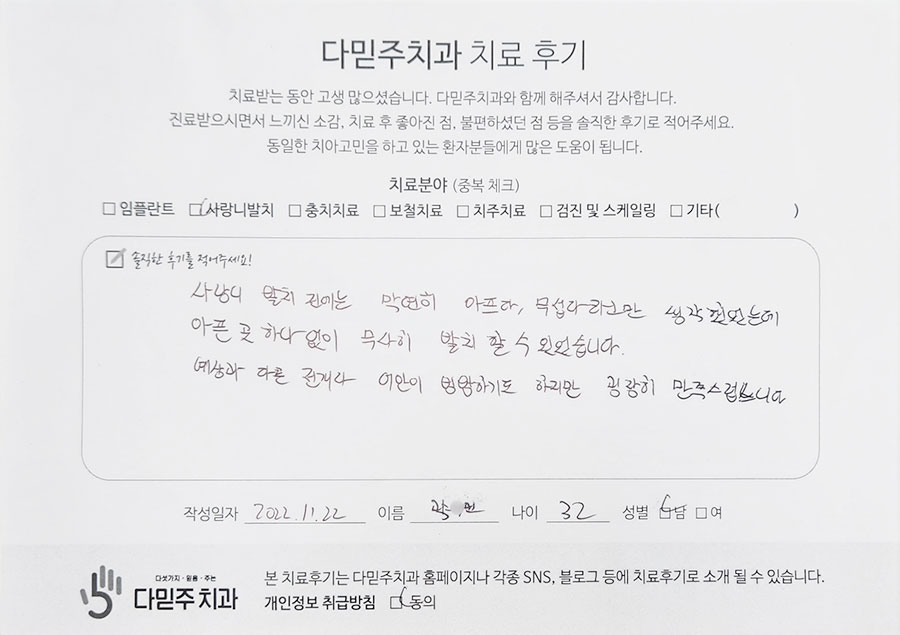 다믿주치과 치료 후기
치료받는 동안 고생 많으셨습니다. 다믿주치과와 함께 해주셔서 감사합니다.
진료받으시면서 느끼신 소감, 치료 후 좋아진 점, 불편하셨던 점 등을 솔직한 후기로 적어주세요.
동일한 치아고민을 하고 있는 환자분들에게 많은 도움이 됩니다.
치료분야 (중복 체크)
□ 임플란트 □ 사랑니발치 □ 충치치료 □ 보철치료 □ 치주치료 □ 검진 및 스케일링 □ 기타( )
솔직한 후기를 적어주세요!
사랑니 발치 전에는 막연히 아프다, 무섭다라고만 생각했었는데
아픈 곳 하나 없이 무사히 발치 할 수 있었습니다.
예상과 다른 전개라 어안이 벙벙하기도 하지만 굉장히 만족스럽습니다
작성일자 2022.11.22 이름 곽 민 나이 32 성별 □남 □여
다섯가지·믿음·주는
다믿주치과
본 치료후기는 다믿주치과 홈페이지나 각종 SNS, 블로그 등에 치료후기로 소개 될 수 있습니다.
개인정보 취급방침 □ 동의